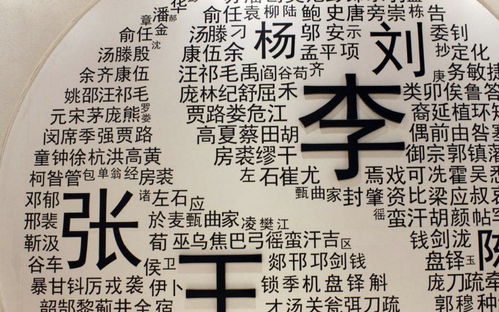 潘 华 俞任袁柳陆 鲍史唐旁崇 告
章任金 郝 汤滕刁 杨 邬安示 刘 委钊
汤滕殷 沈 康伍余 孟平项 抄定化
余齐康伍 汪祁毛禹阎谷苟齐 庚务敏捷
姚邵汪祁 庞林纪舒屈禾 李 类卯俟鲁答
元宋茅庞熊 罗娄 贾路娄危江 裔延植环知
闵席季强贾路 高夏蔡田胡 偶前由咎
童钟徐杭洪高黄 房裘缪干 御宗郭镇落
柯昝管 包单翁经 房裘 左石崔尤 焉戏可冼霍吴悉
邓郁 张 诸 左石 应 甄曲家 封肇资比梁应叔
邢裴 於麦甄曲家 凌樊江 徭蛮汗胡颜帖
靳汲 荀 巫乌焦巴弓徭蛮汗吉 区 钱剑泷 陈
谷车 侯 卫 王 郯邗邛剑钱 盘铎 玉
暴甘钭厉戎袭 伊卜 锁季机盘铎斛 庞刀疏
韶郜黎蓟井全宿 才汤关瓮弭刀疏 郭穆种